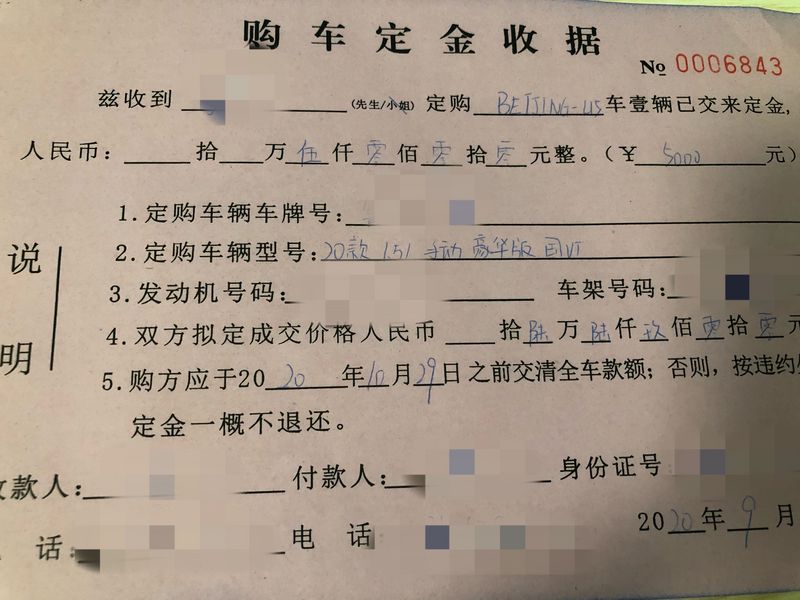 购车定金收据
№ 0006843
兹收到 (先生/小姐) 定购 BEIJING-U5 车壹辆已交来定金,
人民币: 拾 万 伍 仟 零 佰 零 拾 零 元整。(¥ 5000 元)
1.定购车辆车牌号:
2.定购车辆型号: 20款 1.5l 手动 豪华版 国VI
3.发动机号码: 车架号码:
说明
4.双方拟定成交价格人民币 拾 陆 万 陆 仟 玖 佰 零 拾 零 元
5.购方应于20 20 年 10 月 29 日之前交清全车款额; 否则, 按违约
定金一概不退还。
收款人: 付款人: 身份证号
话: 电 话 20 20 年 9 月